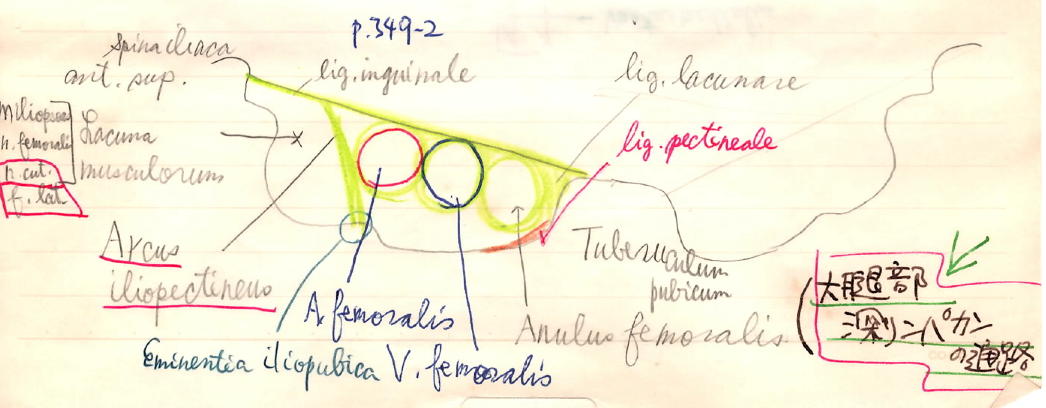 p.349-2
spina iliaca
ant. sup.
lig. inguinale
lig. lacunare
m iliopsoas
n. femoralis
n. cut.
f. lat.
Lacuna
musculorum
lig. pectineale
Arcus
iliopectineus
Tuberculum
pubicum
A. femoralis
Anulus femoralis
Eminentia iliopubica
V. femoralis
大腿部
深リンパカン
の通路